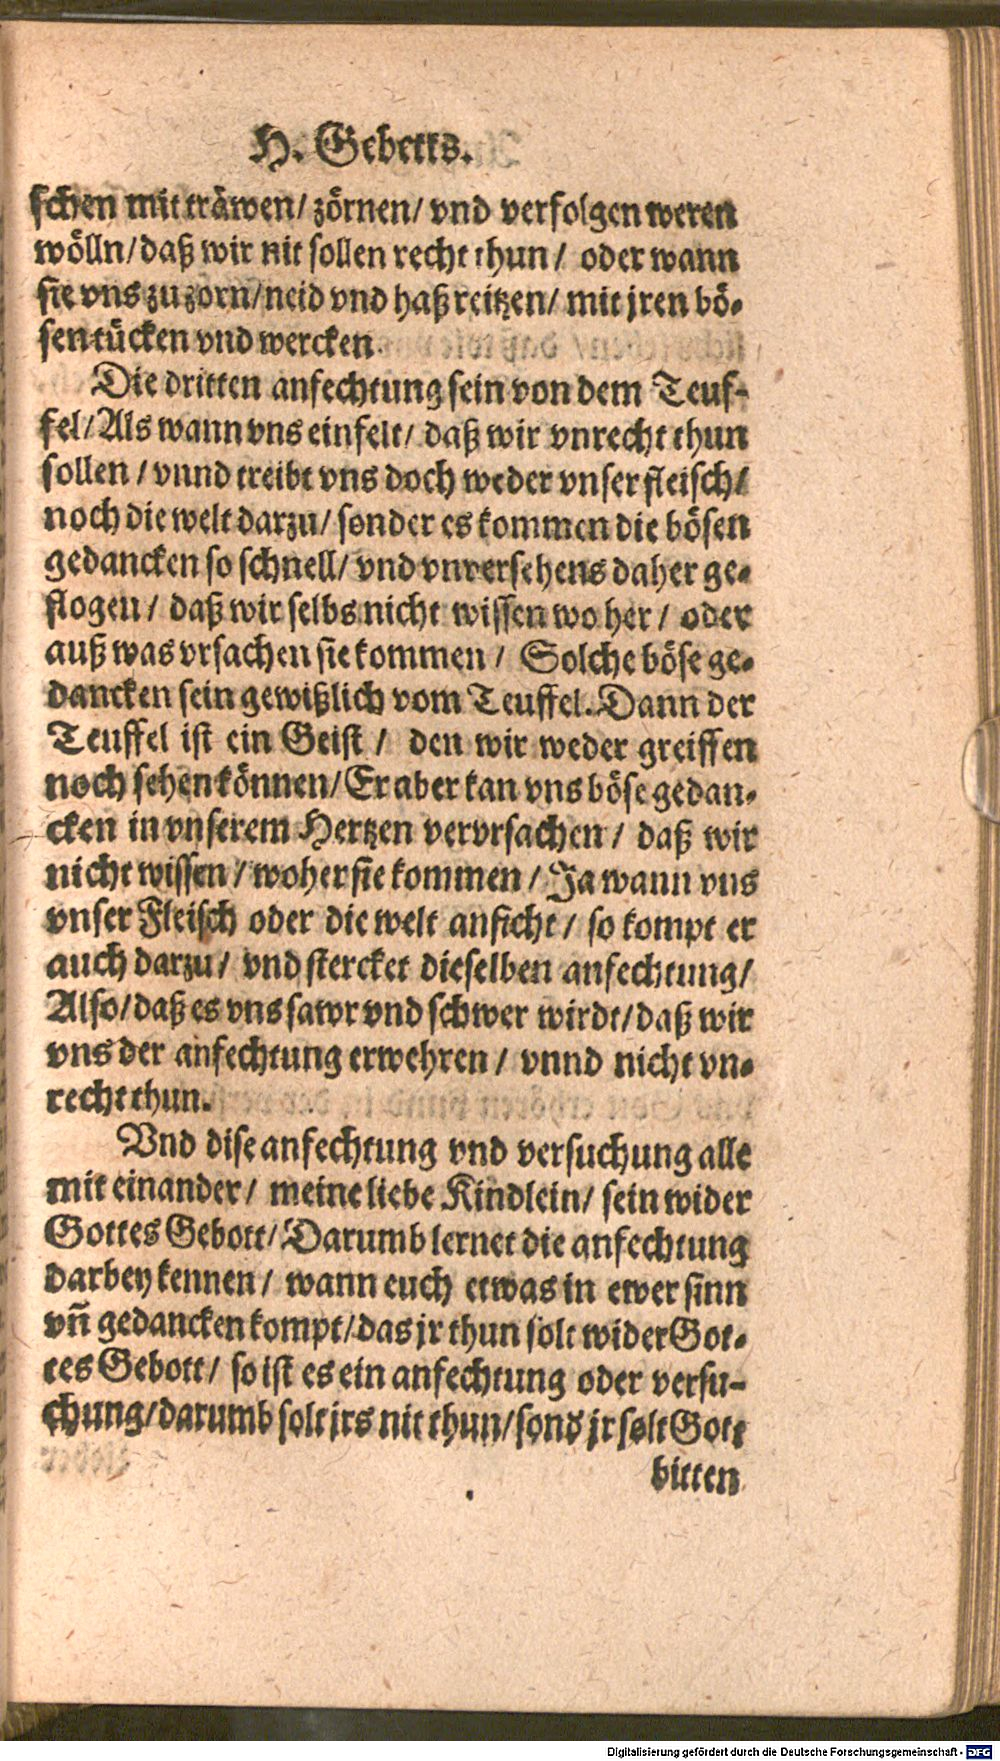 H. Gebetts.
schen mit träwen/ zörnen/ vnd verfolgen weren
wölln/ daß wir nit sollen recht thun/ oder wann
sie vns zu zorn/ neid vnd haß reitzen/ mit jren bö-
sen tücken vnd wercken.
Die dritten anfechtung sein von dem Teuf-
fel/ Als wann vns einfelt/ daß wir vnrecht thun
sollen/ vnnd treibt vns doch weder vnser fleisch/
noch die welt darzu/ sonder es kommen die bösen
gedancken so schnell/ vnd vnversehens daher ge-
flogen/ daß wir selbs nicht wissen wo her/ oder
auß was vrsachen sie kommen/ Solche böse ge-
dancken sein gewißlich vom Teuffel. Dann der
Teuffel ist ein Geist/ den wir weder greiffen
noch sehen können/ Er aber kan vns böse gedan-
cken in vnserem Hertzen vervrsachen/ daß wir
nicht wissen/ woher sie kommen/ Ja wann vns
vnser Fleisch oder die welt anficht/ so kompt er
auch darzu/ vnd stercket dieselben anfechtung/
Also/ daß es vns sawr vnd schwer wirdt/ daß wir
vns der anfechtung erwehren/ vnnd nicht vn-
recht thun.
Vnd dise anfechtung vnd versuchung alle
mit einander/ meine liebe Kindlein/ sein wider
Gottes Gebott/ Darumb lernet die anfechtung
darbey kennen/ wann euch etwas in ewer sinn
vñ gedancken kompt/ das jr thun solt wider Got-
tes Gebott/ so ist es ein anfechtung oder versu-
chung/ darumb solt jrs nit thun/ sond jr solt Gott
bitten
Digitalisierung gefördert durch die Deutsche Forschungsgemeinschaft - DFG